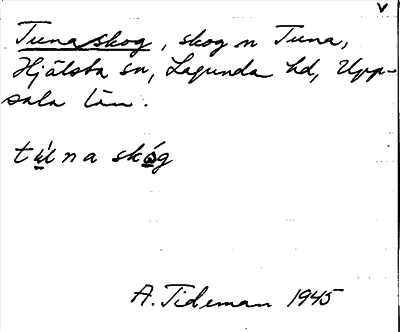 v
Tunaskog, skog n Tuna,
Hjälsta sn, Lagunda hd, Upp-
sala län.
tú̱na skó̱g
A. Tideman 1945